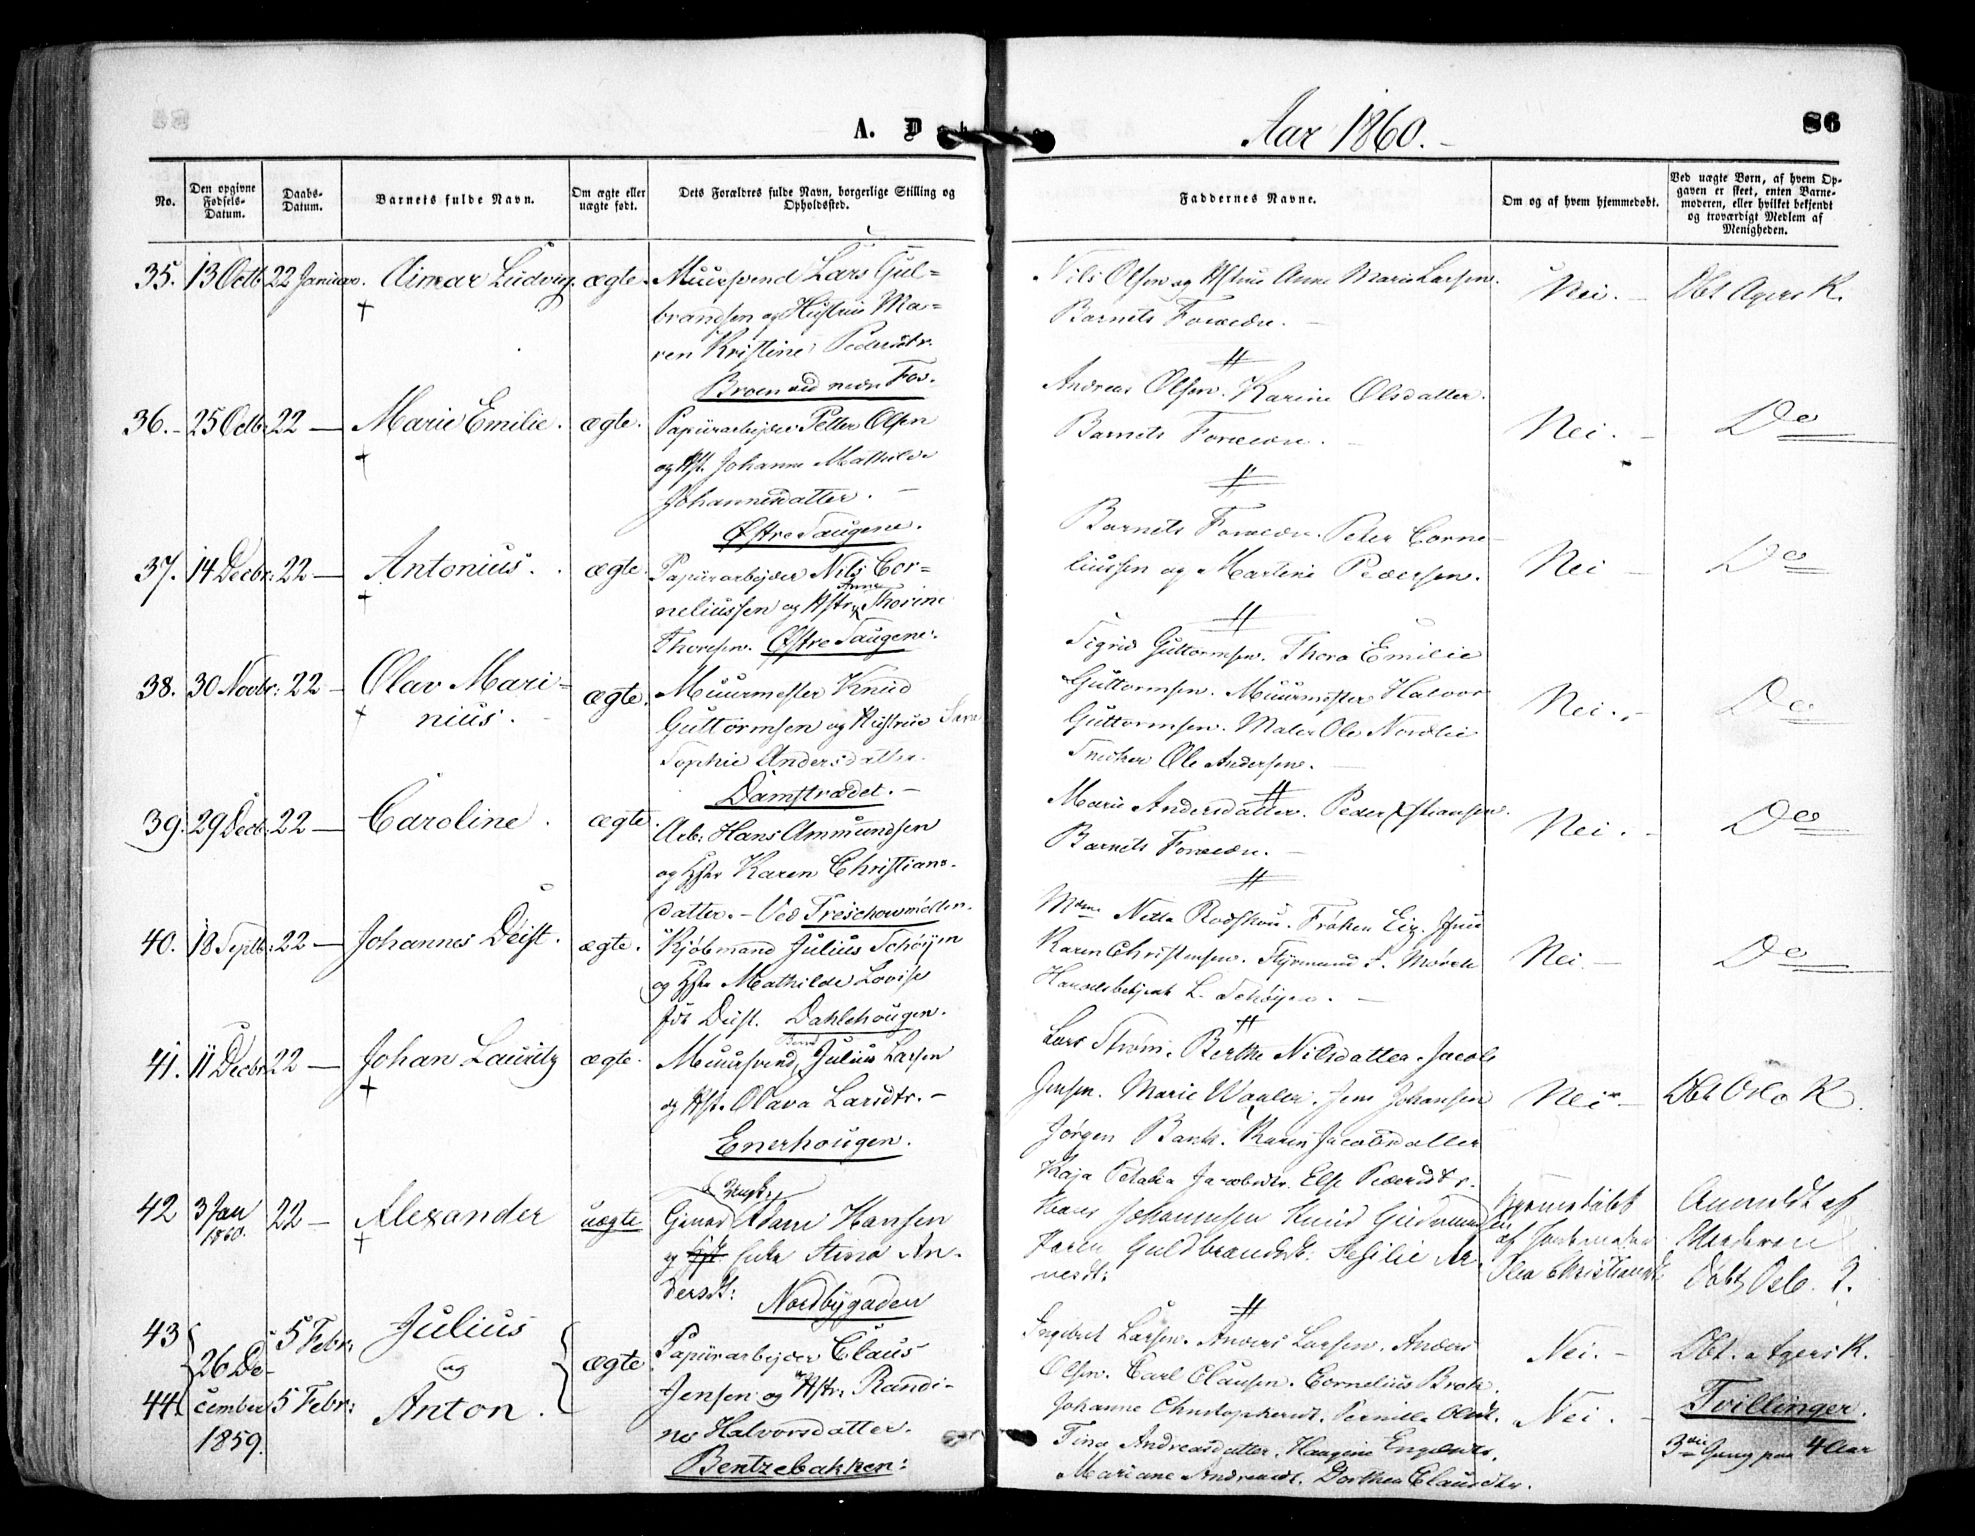 A. Døbte
Aar 1860.
86
No.
Den opgivne Fødsels-Datum.
Daabs-Datum.
Barnets fulde Navn.
Om ægte eller uægte født.
Dets Forældres fulde Navn, borgerlige Stilling og Opholdssted.
Faddernes Navne.
Om og af hvem hjemmedøbt.
Ved uægte Børn, af hvem Opgaven er skeet, enten Barnemoderen, eller hvilket bekjendt og troværdigt Medlem af Menigheden.
35. 13 Octb. 22 Januar. Aimar Ludvig. ægte.
Muursvend Lars Gul-
brandsen og Hustru Ma-
ren Kristine Pedersdtr.
Broen ved nedre Fos.
Nils Olsen og Hstru Anne Marie Larsen.
Barnets Forældre.
Nei. Dbt Agers K.
36. 25 Octb. 22 — Marie Emilie. ægte.
Papiirarbejder Petter Olsen
og Hst. Johanne Mathilde
Johannesdatter.
Østre Taugene.
Andreas Olsen. Karine Olsdatter.
Barnets Forældre.
Nei. Do
37. 14 Decbr: 22 — Antonius. ægte.
Papiirarbejder Nils Cor-
neliussen og Hstr. Anne Thorine
Thoresen. Østre Taugene.
Barnets Forældre. Peter Corne-
liussen og Martine Pedersen.
Nei — Do
38. 30 Novbr: 22 — Olav Mari-
nius. ægte.
Muurmester Knud
Guttormsen og Hustrue Sara
Sophie Andersdatter.
Damstrædet.
Sigrid Guttormsen. Thora Emilie
Guttormsen. Muurmester Halvor
Guttormsen. Maler Ole Nordlie
Snedker Ole Andersen.
Nei. Do
39. 29 Decb: 22 — Caroline. ægte.
Arb. Hans Ammundsen
og Hstr Karen Christians-
datter. — Ved Treschowmøllen.
Marie Andersdatter. Peder Xstiansen.
Barnets Forældre.
Nei. Do
40. 18 Septb: 22 — Johannes Deist. ægte.
Kjøbmand Julius Schøyen
og Hstr Mathilde Lovise
Deist. Dahlehougen.
Mdm Netta Rodskou. Frøken
Karen Christensen. Styrmand
L. Schøyen.
Nei. Do
41. 11 Decbr. 22 — Johan Lauritz ægte.
Muursvend Bernt Julius Larsen
og Hst. Olava Larsdtr. —
Enerhougen.
Lars Strøm. Berthe Nilsdatter. Jacob
Jensen. Marie Waaler. Jens Johansen
Jørgen Bank. Karen Jacobsdatter
Kaja Petrea Jacobsdtr. Else Pedersdtr.
Nei. — Dbt Oslo K.
42 3 Jan 1860. 22 — Alexander uægte
Ungk.
Gjørtl Adam Hansen
og Hst Enke Stina An-
dersdt:
Nordbygaden
Hans Johannesen Knud Gudmundsen
Karen Guldbrandsdt: Sesilie Ar-
nesdt:
hjemmedøbt
af Jordemoder
Christiansdt.
Anmeldt af
Moderen
Døbt Oslo K.
43 26 De- 5 Febr: Julius
og ægte
44. cember 5 Febr: Anton.
1859.
Papiirarbejder Claus
Jensen og Hstr: Randi-
ne Halvorsdatter.
Bentzebakken:
Engebret Larsen. Anders Larsen. Anders
Olsen. Carl Clausen. Cornelius Brok.
Johanne Christophersdt. Pernille Olsdt.
Tina Andreasdatter. Haagine Engebretsd.
Mariane Andreasdt. Dorthea Clausdtr.
Nei. — Dbt. Agers K.
Nei. — Tvillinger.
3die Gang paa 4 Aar